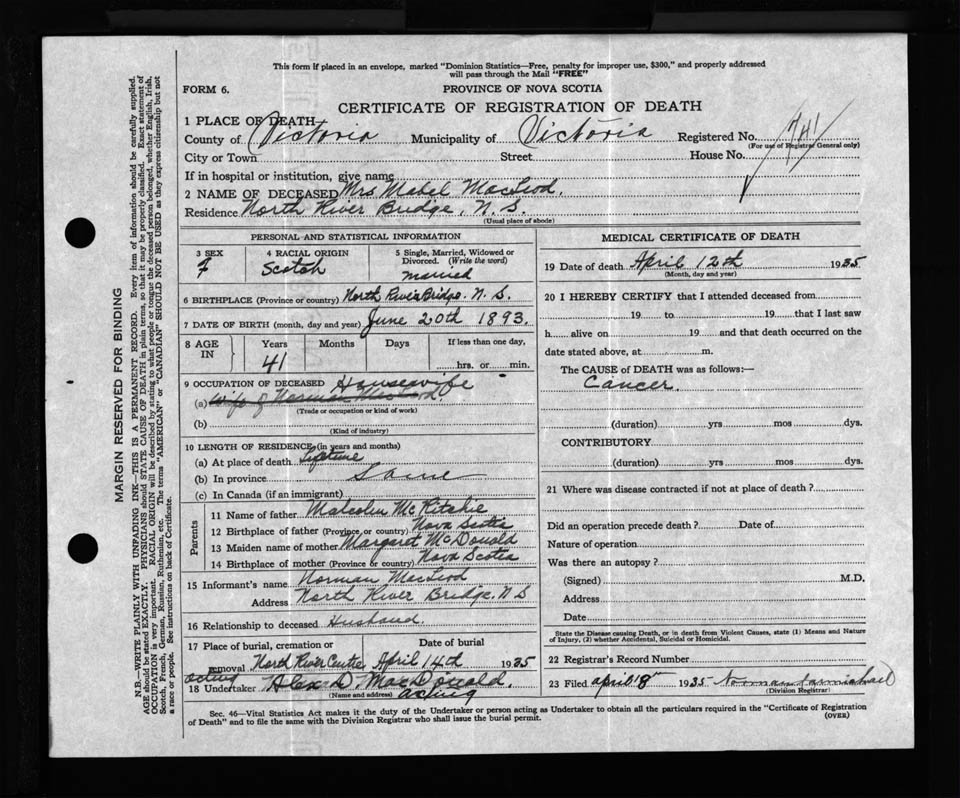 This form if placed in an envelope, marked "Dominion Statistics—Free, penalty for improper use, $300," and properly addressed
will pass through the Mail "FREE"
FORM 6.
PROVINCE OF NOVA SCOTIA
CERTIFICATE OF REGISTRATION OF DEATH
1 PLACE OF DEATH
County of Victoria Municipality of Victoria Registered No. 741
(For use of Registrar General only)
City or Town Street House No.
If in hospital or institution, give name
2 NAME OF DECEASED Mrs Mabel MacLeod.
Residence North River Bridge, N.S.
(Usual place of abode)
PERSONAL AND STATISTICAL INFORMATION
3 SEX 4 RACIAL ORIGIN 5 Single, Married, Widowed or
Divorced. (Write the word)
F Scotch married
6 BIRTHPLACE (Province or country) North River Bridge. N.S.
7 DATE OF BIRTH (month, day and year) June 20th 1893.
8 AGE IN Years Months Days If less than one day,
41 hrs. or min.
9 OCCUPATION OF DECEASED Housewife
(a) wife of Norman
(Trade or occupation or kind of work)
(b)
(Kind of industry)
10 LENGTH OF RESIDENCE (in years and months)
(a) At place of death Lifetime
(b) In province Same
(c) In Canada (if an immigrant)
Parents
11 Name of father Malcolm McRitchie
12 Birthplace of father (Province or country) Nova Scotia
13 Maiden name of mother Margaret McDonald
14 Birthplace of mother (Province or country) Nova Scotia
15 Informant's name Norman MacLeod
Address North River Bridge. N.S
16 Relationship to deceased Husband.
17 Place of burial, cremation or Date of burial
removal North River Centre April 14th 1935
acting
18 Undertaker Alex D. MacDonald.
(Name and address) acting
MEDICAL CERTIFICATE OF DEATH
19 Date of death April 12th 1935
(Month, day and year)
20 I HEREBY CERTIFY that I attended deceased from
19 to 19 that I last saw
h alive on 19 and that death occurred on the
date stated above, at m.
The CAUSE of DEATH was as follows:—
Cancer.
(duration) yrs mos dys.
CONTRIBUTORY
(duration) yrs mos dys.
21 Where was disease contracted if not at place of death?
Did an operation precede death? Date of
Nature of operation
Was there an autopsy?
(Signed) M.D.
Address
Date
State the Disease causing Death, or in death from Violent Causes, state (1) Means and Nature
of Injury, (2) whether Accidental, Suicidal or Homicidal.
22 Registrar's Record Number
23 Filed April 18 1935 Norman Carmichael
(Division Registrar)
Sec. 46—Vital Statistics Act makes it the duty of the Undertaker or person acting as Undertaker to obtain all the particulars required in the "Certificate of Registration
of Death" and to file the same with the Division Registrar who shall issue the burial permit.
(OVER)
MARGIN RESERVED FOR BINDING
N.B.—WRITE PLAINLY WITH UNFADING INK—THIS IS A PERMANENT RECORD. Every item of information should be carefully supplied.
AGE should be stated EXACTLY. PHYSICIANS should STATE CAUSE OF DEATH in plain terms, so that it may be properly classified. Exact statement of
OCCUPATION is very important. RACIAL ORIGIN will be described by stating to what people or tongue the deceased person belonged, whether English, Irish,
Scotch, French, German, Russian, Ruthenian, etc. The terms "AMERICAN" or "CANADIAN" SHOULD NOT BE USED as they express citizenship but not
a race or people. See instructions on back of Certificate.